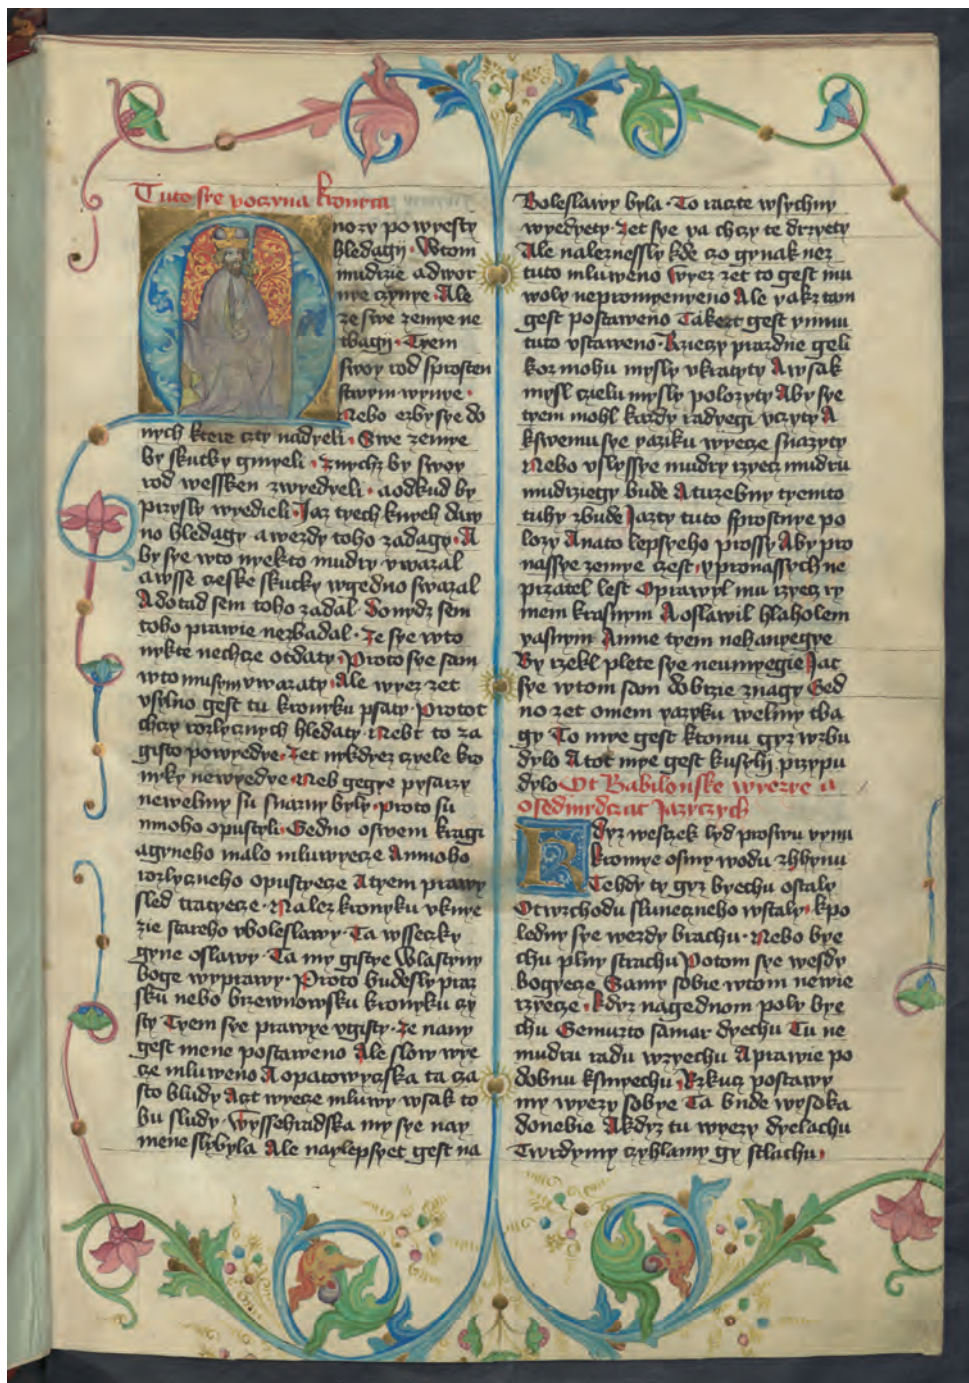 Tuto sye poczyna kronyca
Mnozy powyesty
hledagij Wtom
mudrzie adwor
nye czynye Ale
ze swe zemye ne
tbagij Tyem
swoy rod sprosten
stwym wynye
Nebo czbysye do
nych ktere czty nadyeli Swe zemye
by skutky gmyeli znychz by swoy
rod wessken zwyedyeli aodkud by
przysly wyedieli Jaz tyech knyeh daw
no hledagy awerdy toho zadagy A
by sye wto nyekto mudry vwazal
awsse czeske skutky wgedno swazal
Adotad sem toho zadal Donydz sem
toho prawie nezbadal Ze sye wto
nykte nechcze otdaty Proto sye sam
wto musym vwazaty Ale wyez zet
vsylno gest tu kronyku psaty Protot
chczy rozlycznych hledaty Nebt to za
gisto powyedye Zet nykdyez czele kro
nyky newyedye Neb gegye pysarzy
newelmy su snazny byly proto su
mnoho opustyli Gedno oswem kragi
agyneho malo mluwyecze Amnoho
rozlyczneho opustyecze Atyem prawy
sled tratyecze Nalez kronyku vknye
zie stareho vboleslawy Ta wsseczky
gyne oslawy Ta my gistye Wlastyny
boge wyprawy Proto budesly praz
sku nebo brzewnowsku kronyku czy
sty Tyem sye prawye vgisty Ze nany
gest mene postaweno Ale slow wye
cze mluweno A opatowyczska ta cza
sto bludy Aczt wyecze mluwy wsak to
bu sludy Wyssehradska my sye nay
mene slybyla Ale naylepsyet gest na
Boleslawy byla To raczte wsychny
wyedyety Zet sye ya chczy te drzyety
Ale naleznessly kde czo gynak nez
tuto mluweno Wyez zet to gest mu
woly nepromyenyeno Ale yakz tam
gest postaweno Takezt gest ynmu
tuto vstaweno Rzieczy prazdne geli
koz mohu mysly vkratyty Awsak
mysl czielu mysly polozyty Aby sye
tyem mohl kazdy radyegi vczyty A
kswemu sye yaziku wyecze snazyty
Nebo vslyssye mudry rzyecz mudru
mudrziegy bude Aturzebny tyemto
tuhy zbude Jazty tuto sprostnye po
lozy Anato lepsyeho prossy Aby pro
nassye zemye czest ypronassych ne
przatel lest Oprawyl mu rzyecz ry
mem krasnym Aoslawil hlaholem
yasnym Amne tyem nehanyegye
By rzekl plete sye neumyegie Jac
sye wtom sam dobrzie znagy Ged
no zet omem yazyku welmy tba
gy To mye gest ktomu gyz wzbu
dylo Atot mye gest kusyly przypu
dylo Ot Babilonske wyezye a
osedmydczat Jazyczych
Kdyz wessek lyd proswu vynu
kromye osmy wodu zhhynu
Tehdy ty gyz byechu ostaly
Otwzchodu slunecznego wstaly kpo
ledny sye wezdy brachu Nebo bye
chu plny strachu Potom sye wesdy
bogyecze Samy sobie wtom newie
rzyecze Kdyz nagednom poly bye
chu Semurto samar dyechu Tu ne
mudru radu wzyechu Aprawie po
dobnu ksmyechu Rzkucz postawy
my wyezy sobye Ta bude wysoka
donebie Akdyz tu wyezy dyelachu
Twrdymy czyhlamy gy stlachu